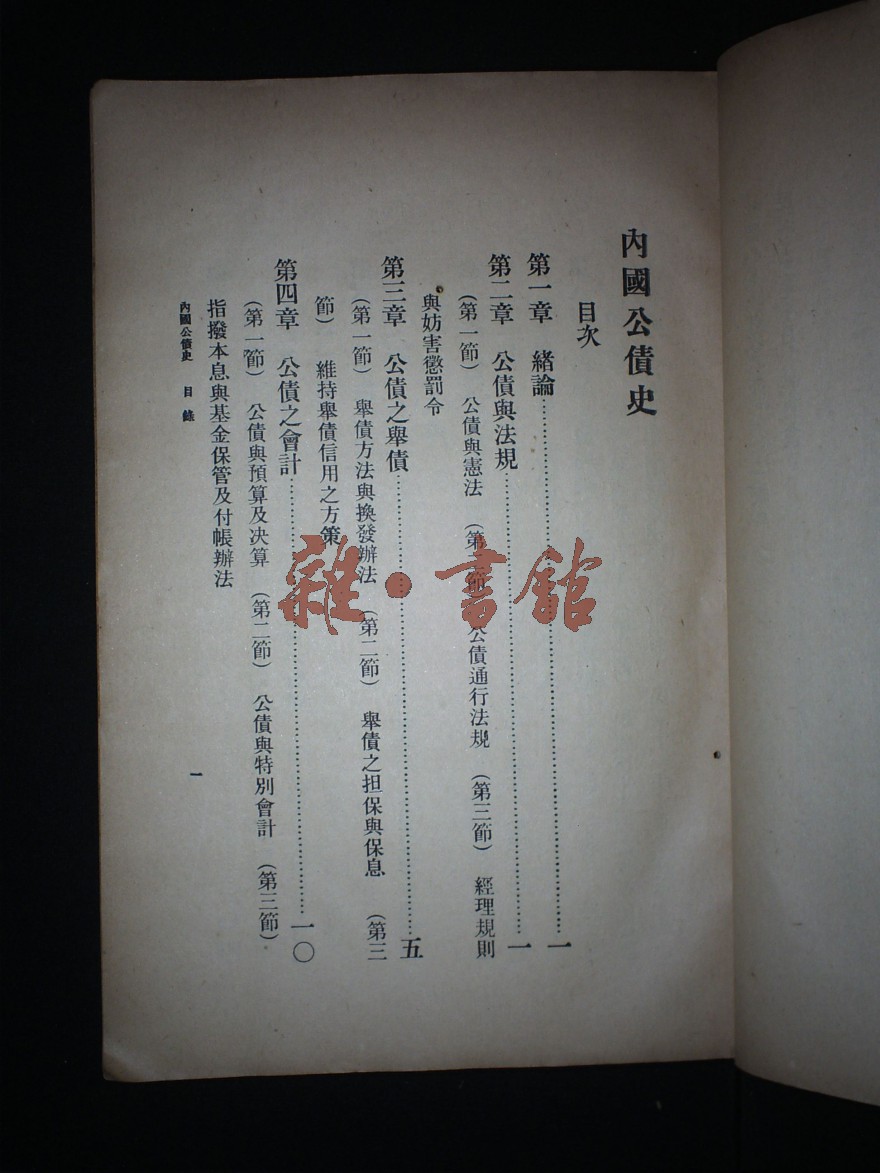 內國公債史
目次
第一章 緒論……一
第二章 公債與法規……一
(第一節) 公債與憲法 (第二節) 公債通行法規 (第三節) 經理規則
與妨害懲罰令
第三章 公債之舉債……五
(第一節) 舉債方法與換發辦法 (第二節) 舉債之担保與保息 (第三
節) 維持舉債信用之方策
第四章 公債之會計……一〇
(第一節) 公債與預算及決算 (第二節) 公債與特別會計 (第三節)
指撥本息與基金保管及付帳辦法
內國公債史 目錄
一
雜·書館